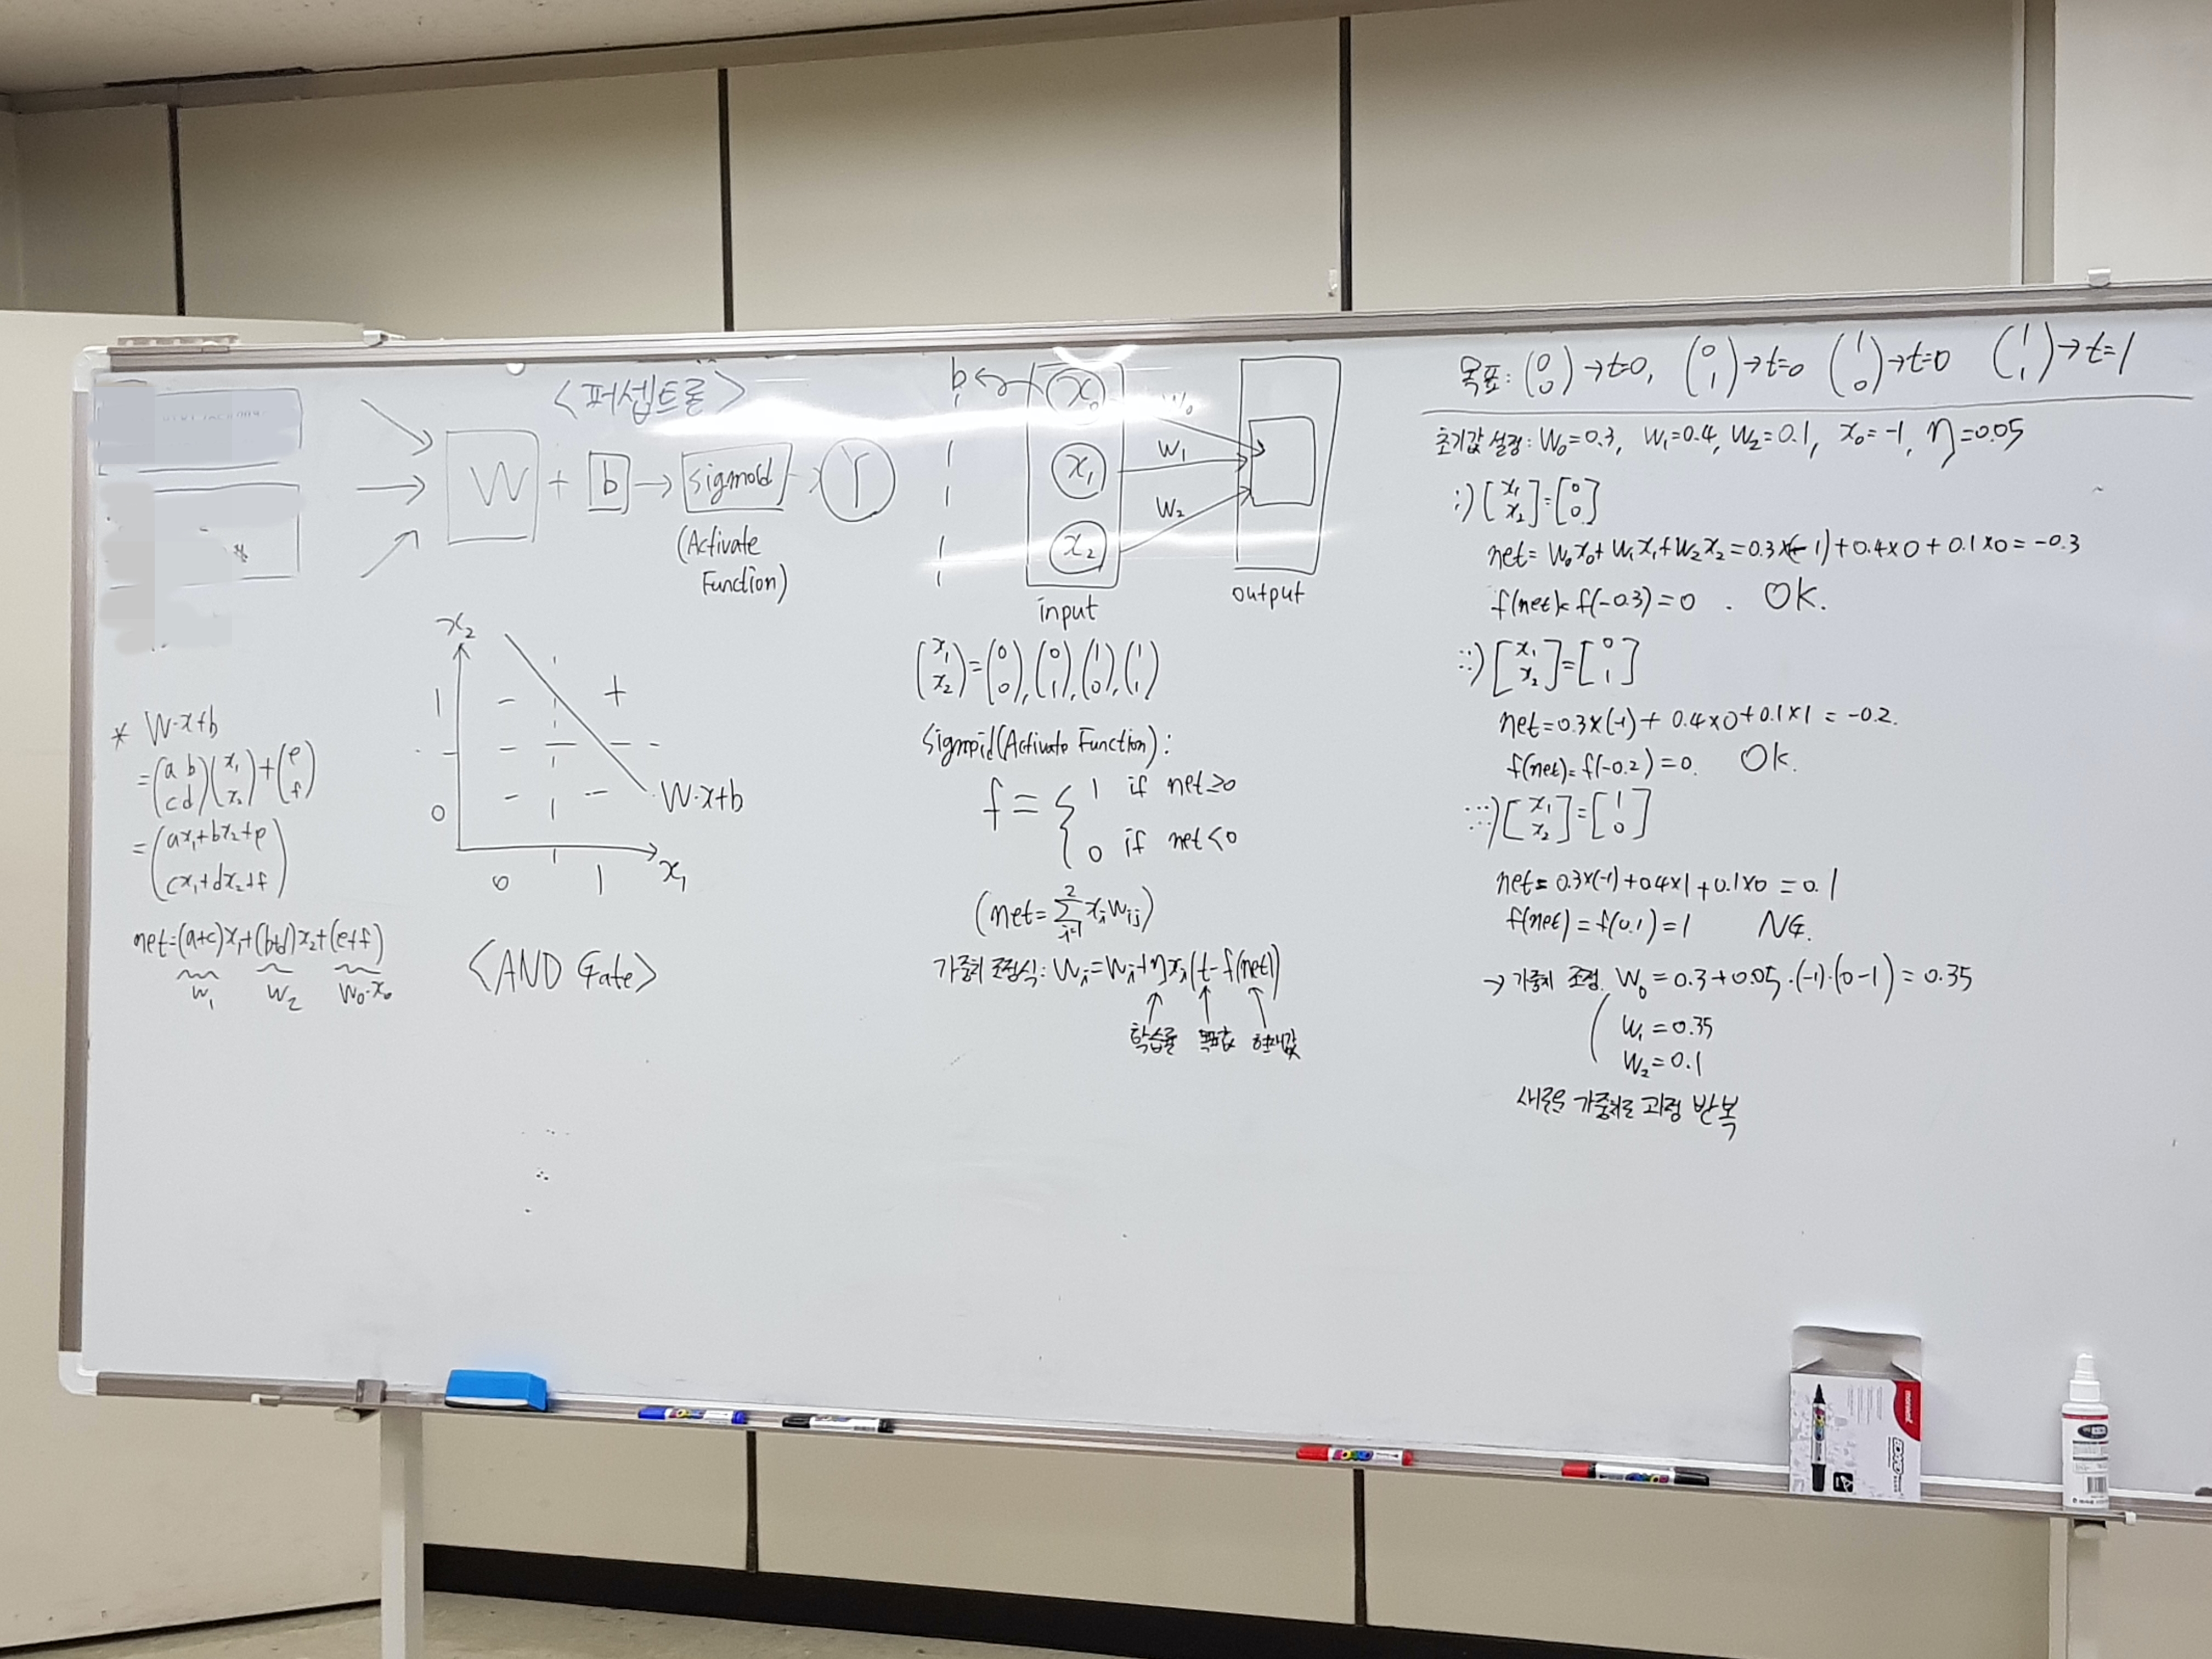 <퍼셉트론>
W + b → Sigmoid → Y
(Activate
Function)
* W·x+b
=(a b
c d)(x₁
x₂)+(e
f)
=(ax₁+bx₂+e
cx₁+dx₂+f)
net=(a+c)x₁+(b+d)x₂+(e+f)
W₁ W₂ W₀·x₀
x₂
1 - +
- -
0 - - W·x+b
0 1 x₁
<AND Gate>
b ← x₀ W₀
x₁ W₁
x₂ W₂
input
output
(x₁
x₂)=(0
0),(0
1),(1
0),(1
1)
Sigmoid(Activate Function):
f = { 1 if net≥0
0 if net<0
(net=∑xᵢwᵢⱼ)
가중치 조정식: Wᵢ=Wᵢ+ηxᵢ(t-f(net))
학습률 목표값 현재값
목표: (0
0)→t=0, (0
1)→t=0 (1
0)→t=0 (1
1)→t=1
초기값 설정: W₀=0.3, W₁=0.4, W₂=0.1, x₀=-1, η=0.05
i) [x₁
x₂]=[0
0]
net= W₀x₀+W₁x₁+W₂x₂=0.3×(-1)+0.4×0+0.1×0=-0.3
f(net)=f(-0.3)=0. OK.
ii) [x₁
x₂]=[0
1]
net=0.3×(-1)+0.4×0+0.1×1=-0.2.
f(net)=f(-0.2)=0. OK.
iii) [x₁
x₂]=[1
0]
net=0.3×(-1)+0.4×1+0.1×0=0.1
f(net)=f(0.1)=1 NG.
→ 가중치 조정. W₀=0.3+0.05·(-1)·(0-1)=0.35
W₁=0.35
W₂=0.1
새로운 가중치로 과정 반복
monami